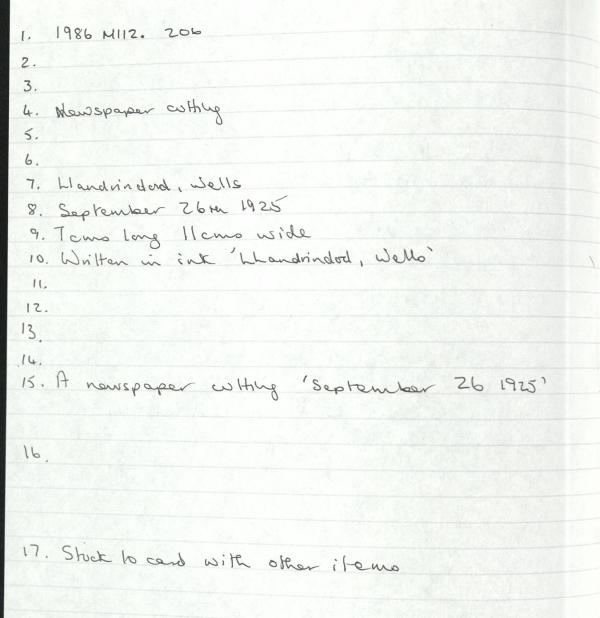 1. 1986 M112. 206
2.
3.
4. Newspaper cutting
5.
6.
7. Llandrindod, Wells
8. September 26th 1925
9. 7cms long 11cms wide
10. Written in ink 'Llandrindod, Wells'
11.
12.
13.
14.
15. A newspaper cutting 'September 26 1925'
16.
17. Stuck to card with other items